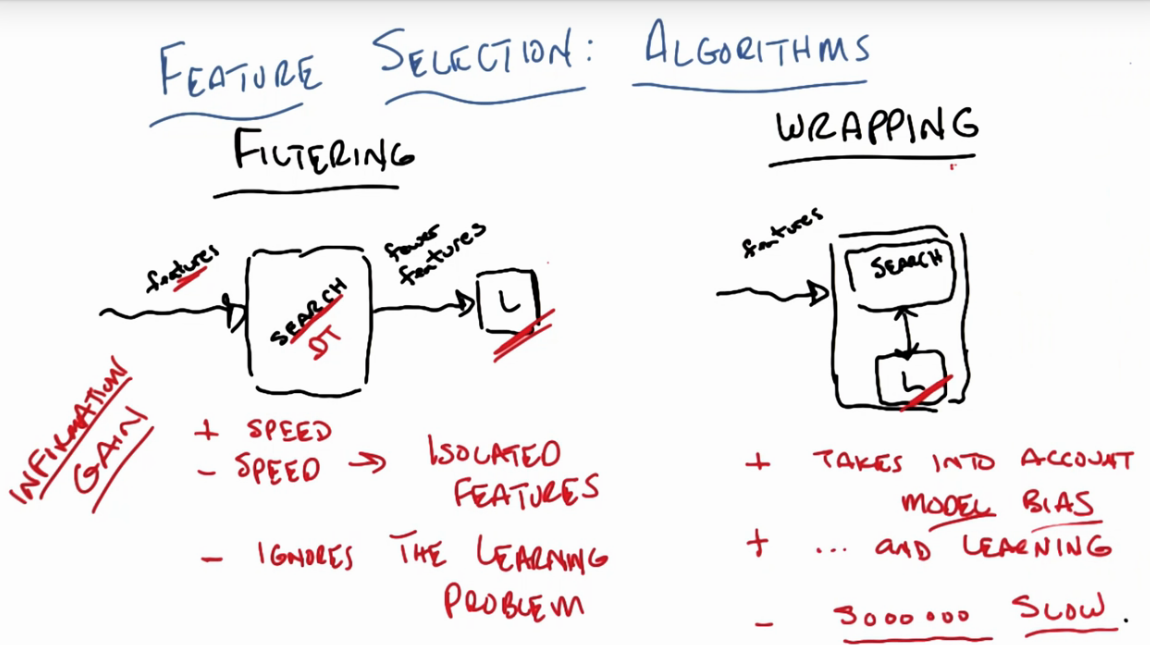 FEATURE SELECTION: ALGORITHMS
FILTERING
features
SEARCH
DT
fewer
features
L
INFIRMATION
GAIN
+ SPEED
- SPEED → ISOLATED
FEATURES
- IGNORES THE LEARNING
PROBLEM
WRAPPING
features
SEARCH
L
+ TAKES INTO ACCOUNT
MODEL BIAS
+ ... AND LEARNING
- SOOOOOO SLOW.